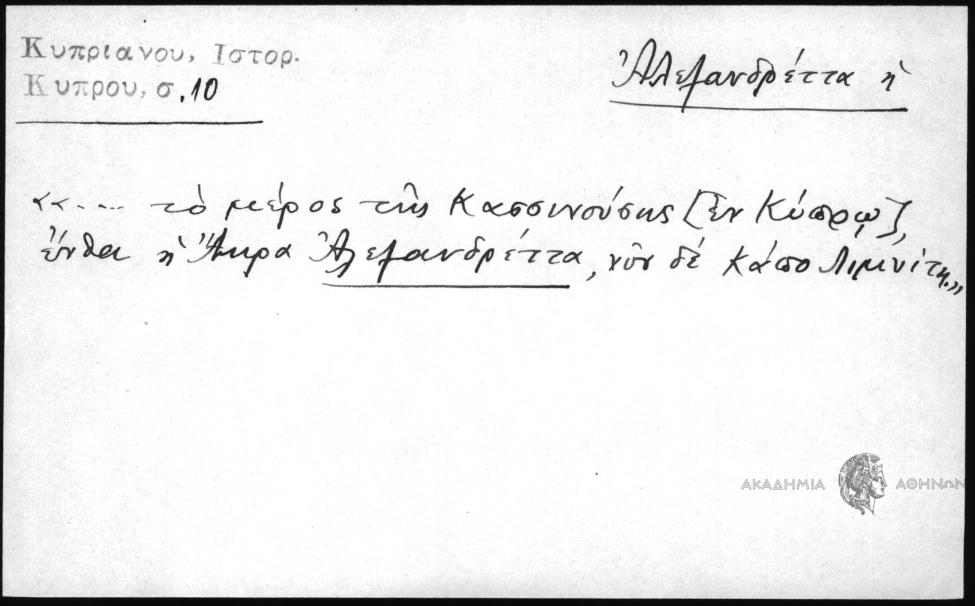 Κυπριανου, Ιστορ.
Κυπρου, σ. 10
Ἀλεξανδρέττα ἡ
«.... τὸ μέρος τῆς Κασσινούσης [ἐν Κύπρῳ],
ἔνθα ἡ Ἄκρα Ἀλεξανδρέττα, νῦν δέ Κάπο Λιμνίτη.»
ΑΚΑΔΗΜΙΑ ΑΘΗΝΩΝ